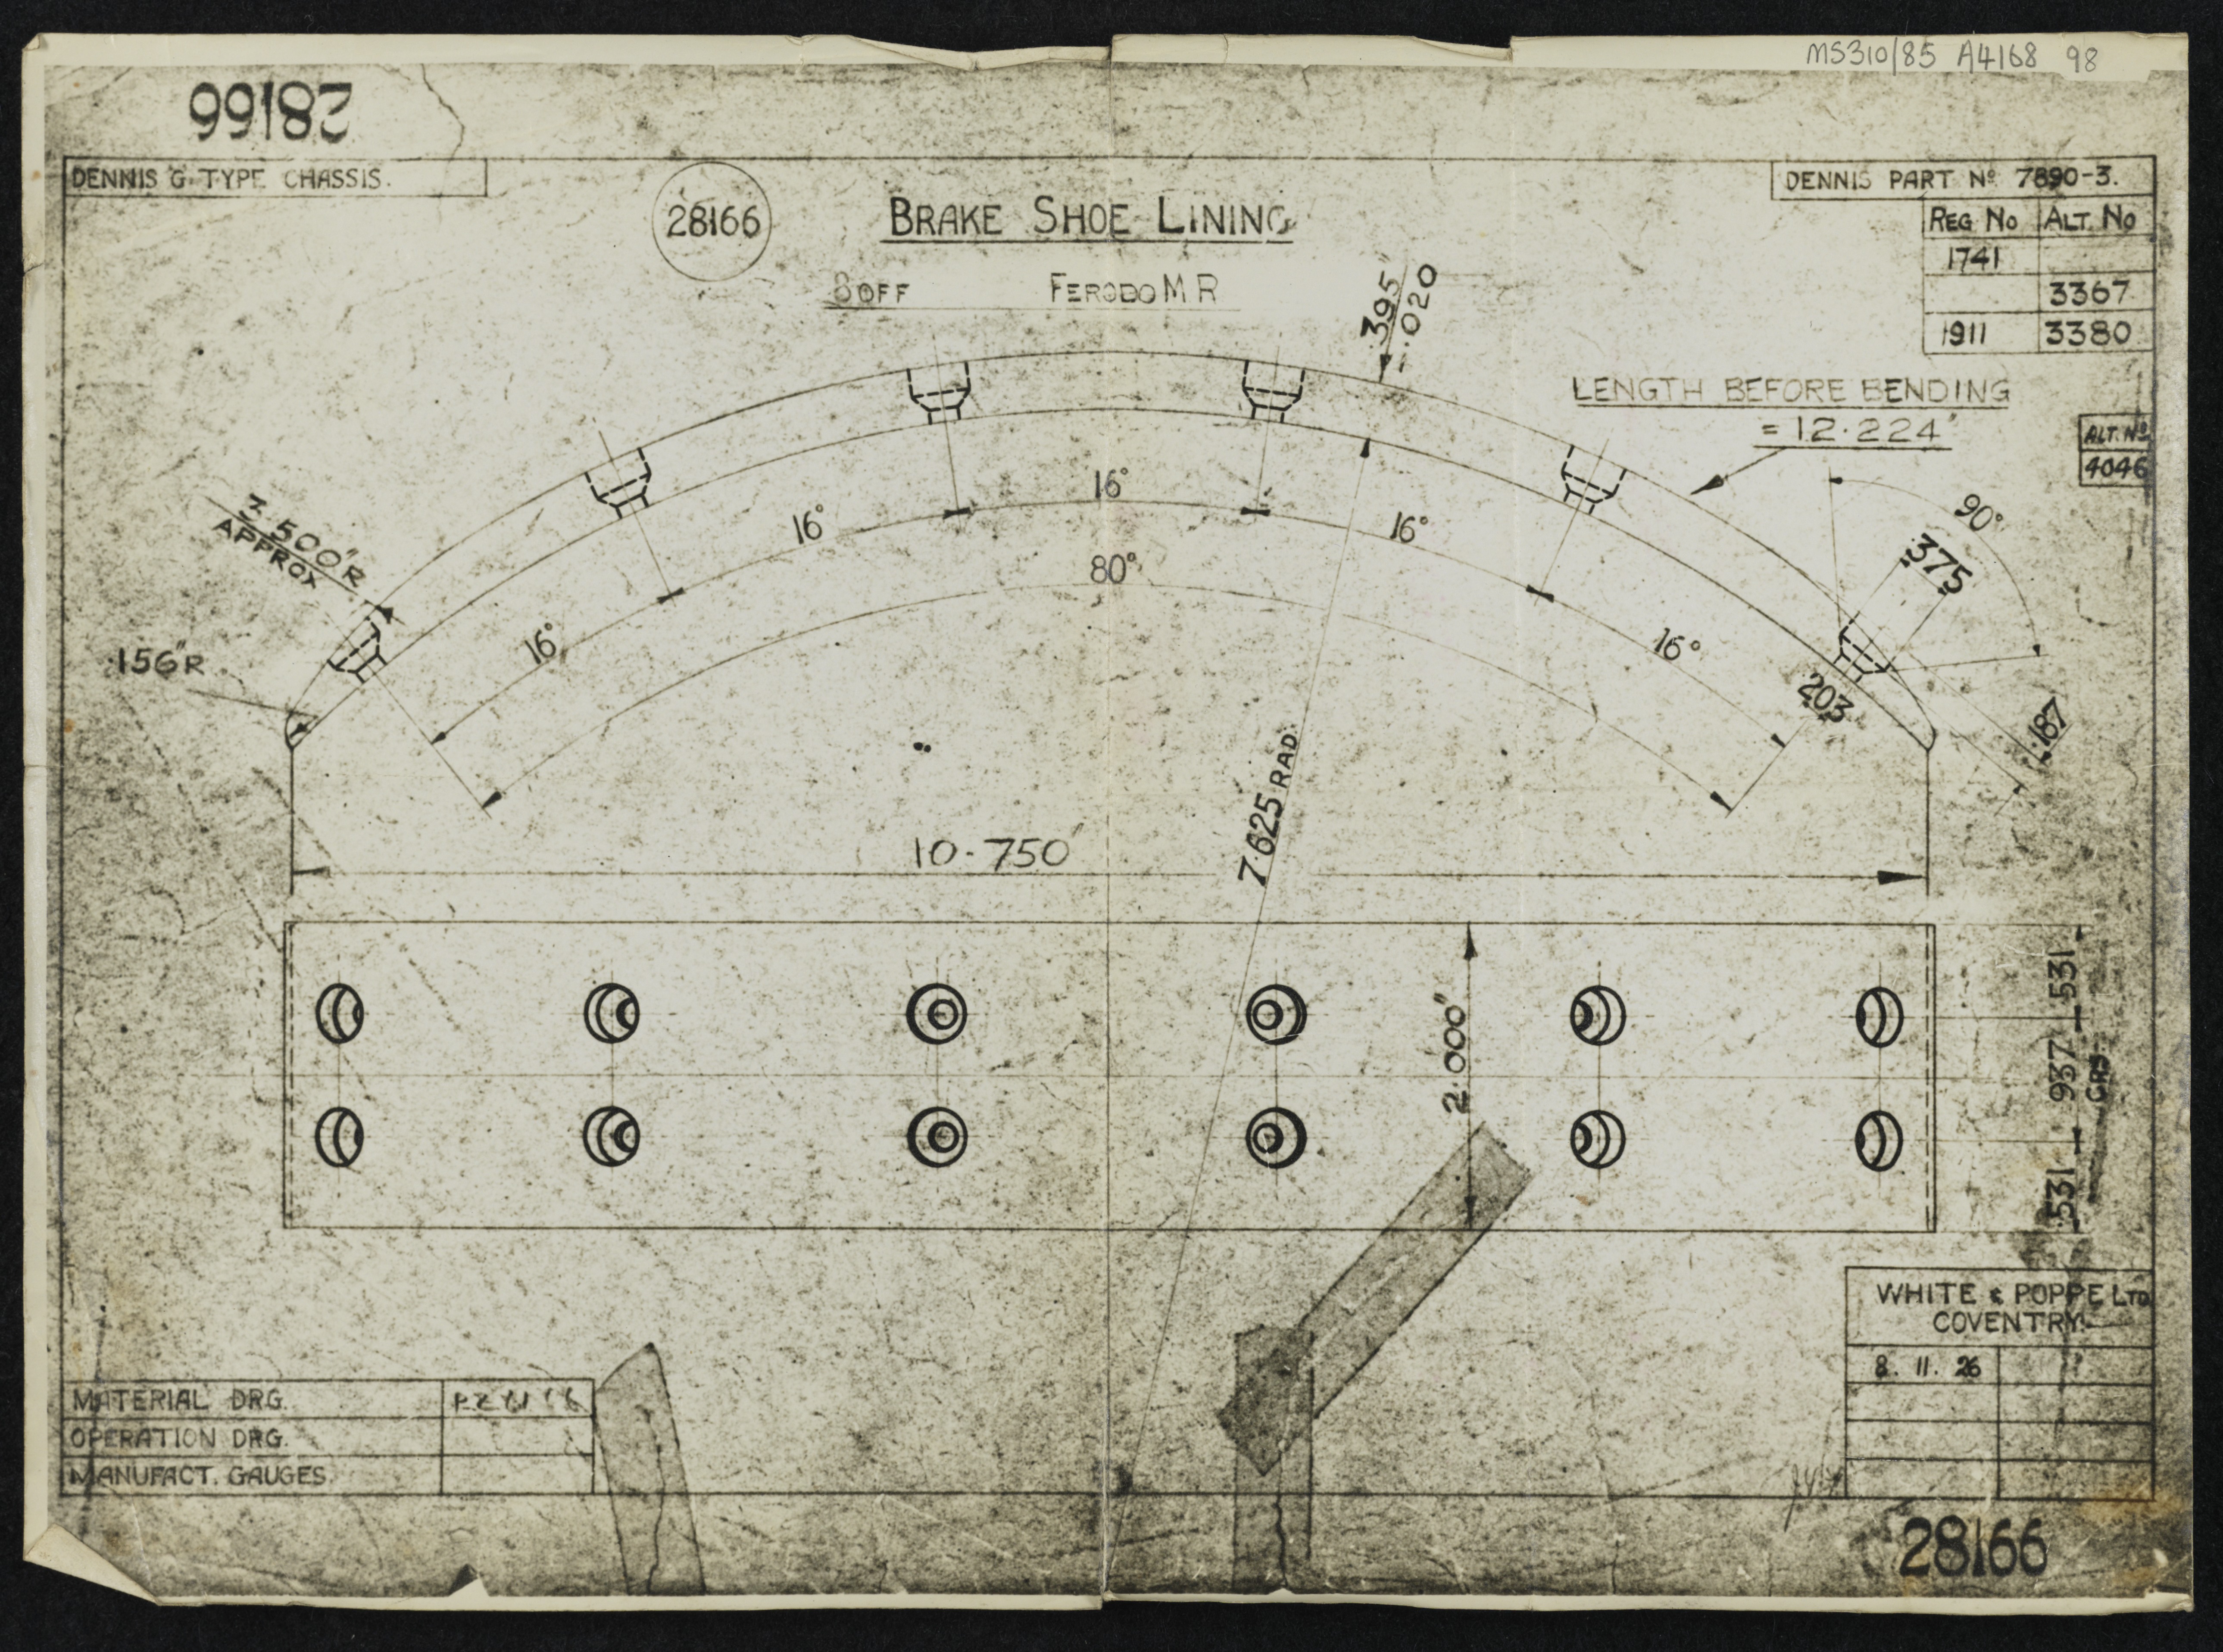 MS310/85 A4168 98
28166
DENNIS 'G' TYPE CHASSIS.
28166
BRAKE SHOE LINING
8 OFF FERODO M R
DENNIS PART Nº 7890-3.
REG No ALT. No
1741
3367
1911 3380
ALT. Nº
4046
.395"
-.020
LENGTH BEFORE BENDING
= 12.224"
3.500"R
APPROX
.156"R
16°
16°
16°
16°
16°
80°
90°
.375
.203
.187
7.625 RAD.
10.750"
2.000"
.531
.937
CRS
.531
WHITE & POPPE LTD
COVENTRY.
8. 11. 26
MATERIAL DRG.
OPERATION DRG.
MANUFACT. GAUGES.
28166